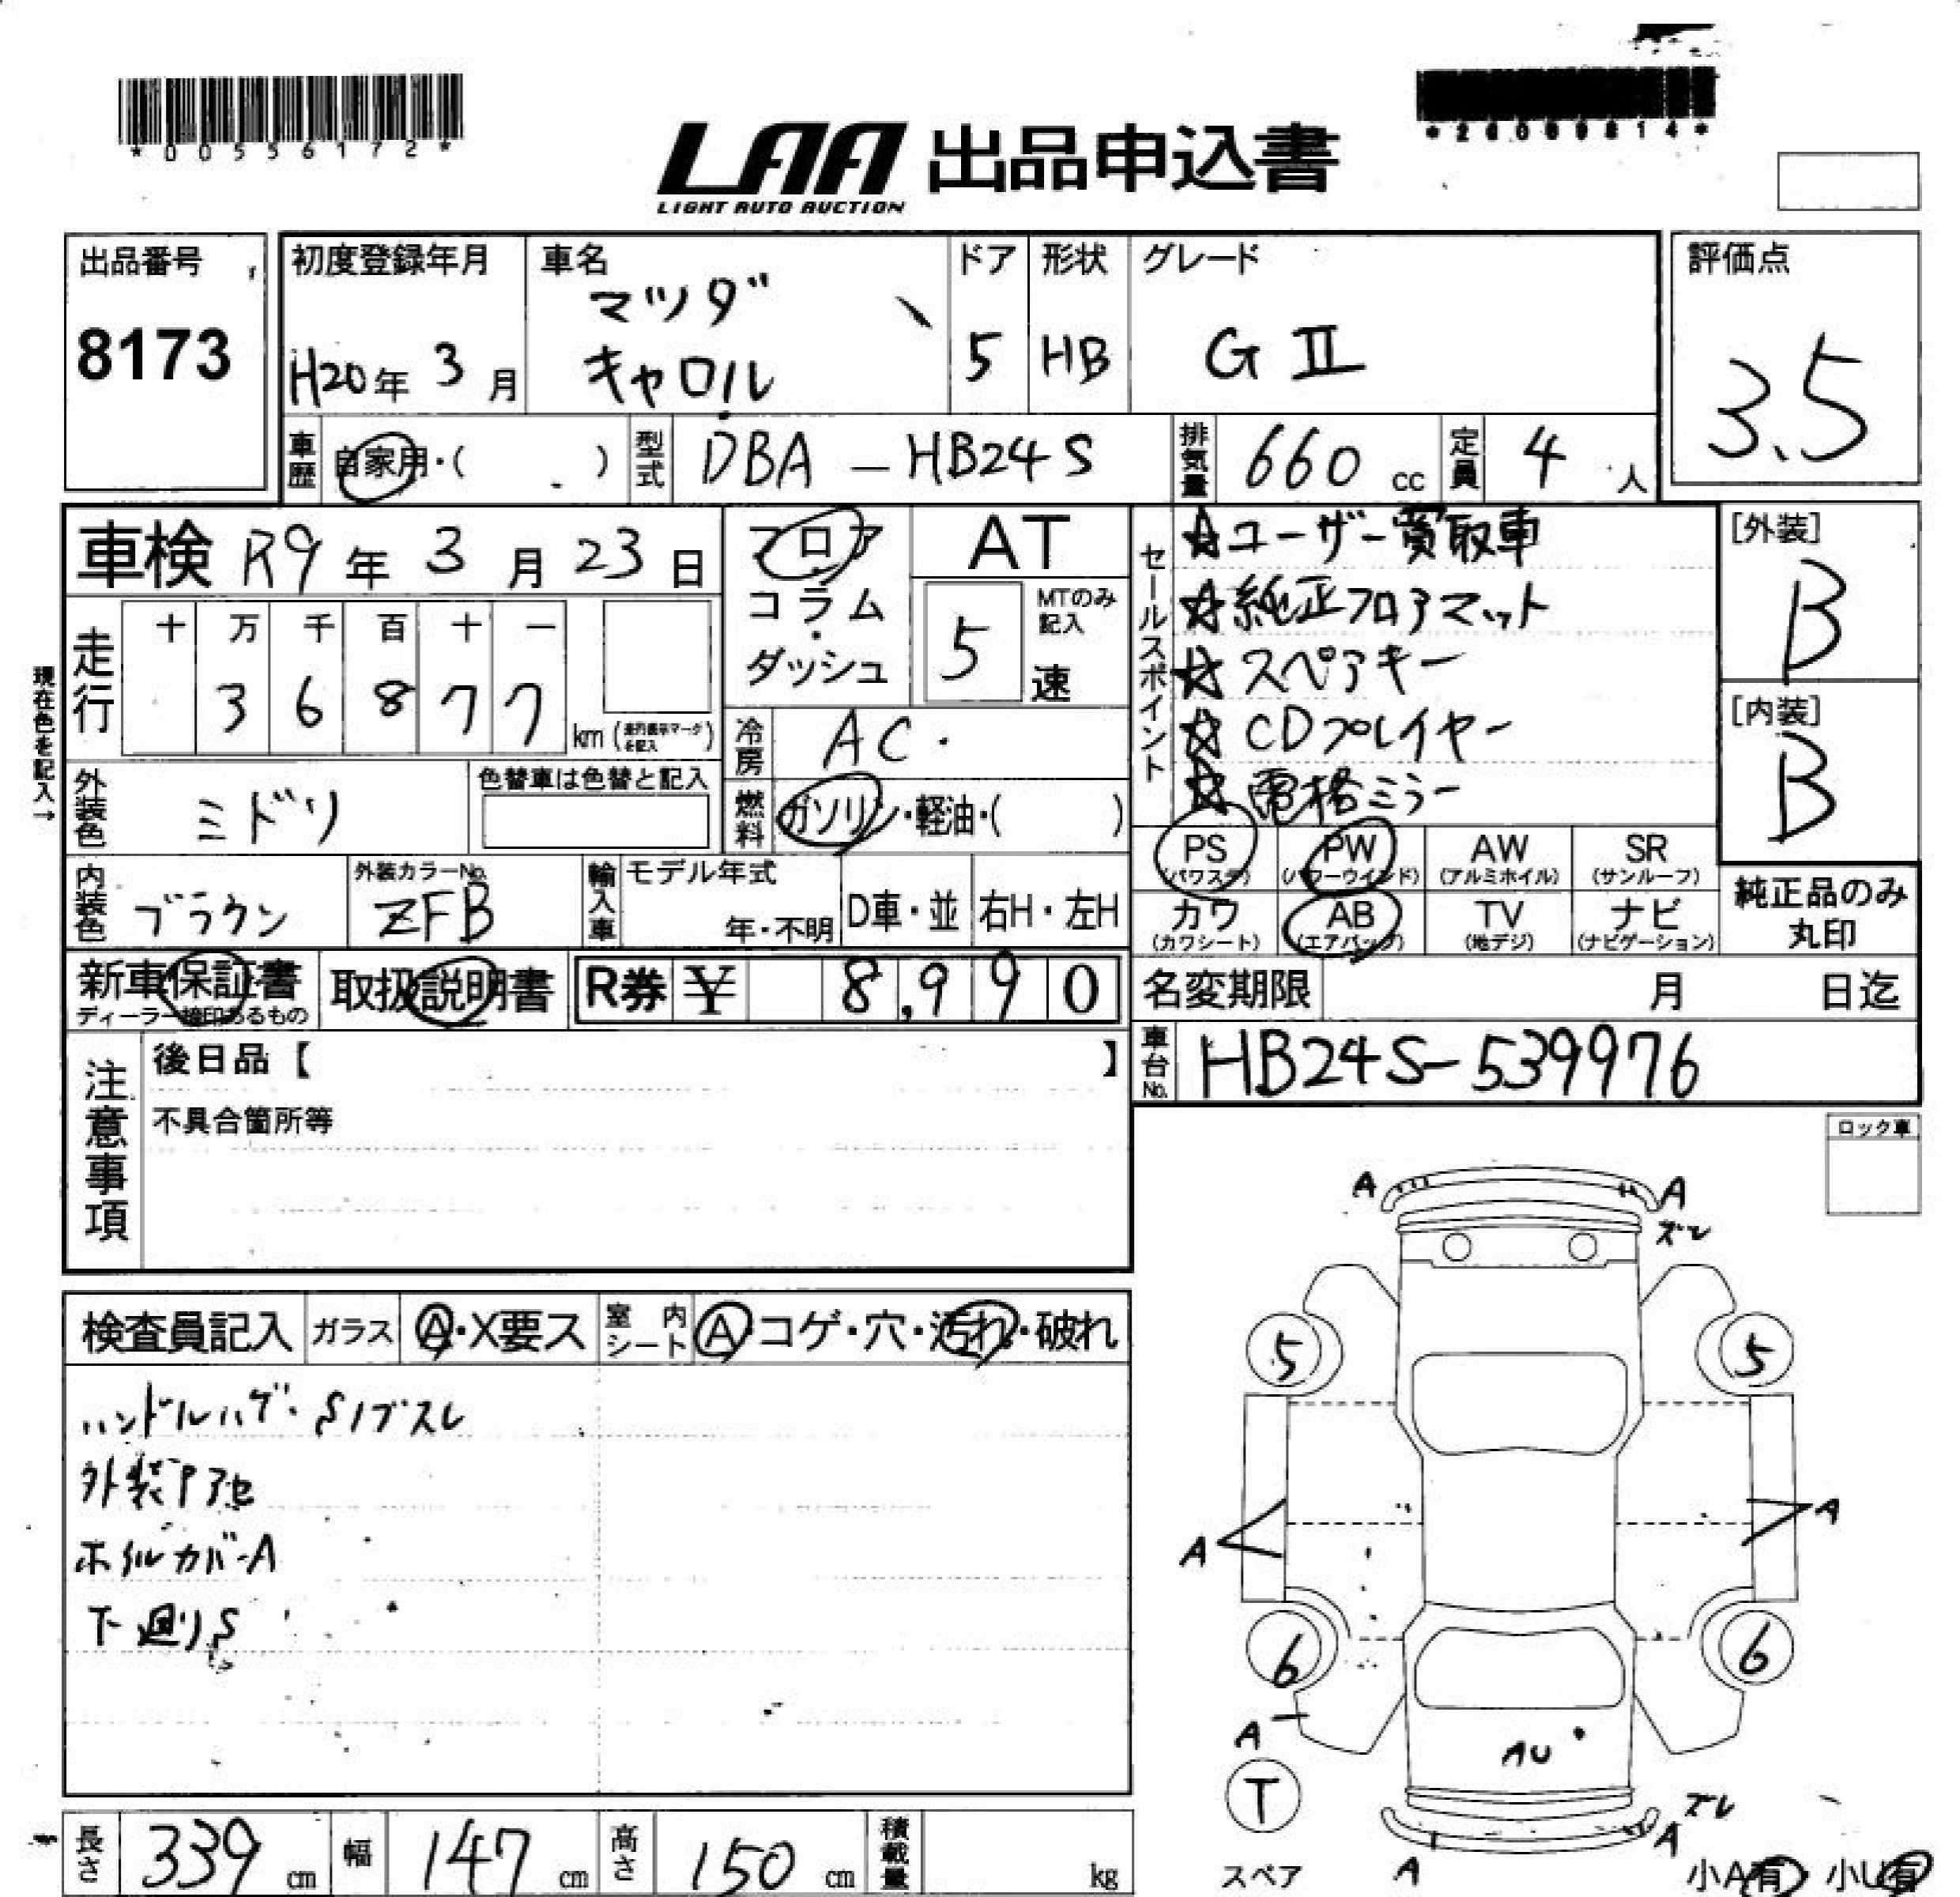 *00556172*
*26009814*
LAA 出品申込書
LIGHT AUTO AUCTION
出品番号
8173
初度登録年月
H20年 3月
車名
マツダ
キャロル
ドア
5
形状
HB
グレード
GⅡ
評価点
3.5
車歴 自家用・( )
型式 DBA-HB24S
排気量 660 cc
定員 4 人
車検 R9年 3月 23日
フロア・コラム・ダッシュ
AT
5 速
MTのみ記入
走行
十 万 千 百 十 一
3 6 8 7 7 km
現在色を記入→
冷房 AC
燃料 ガソリン・軽油・( )
外装色 ミドリ
色替車は色替と記入
内装色 ブラウン
外装カラーNo. ZFB
輸入車 モデル年式
年・不明
D車・並
右H・左H
セールスポイント
☆ユーザー買取車
☆純正フロアマット
☆スペアキー
☆CDプレイヤー
☆電格ミラー
[外装]
B
[内装]
B
PS (パワステ)
PW (パワーウインド)
AW (アルミホイル)
SR (サンルーフ)
カワ (カワシート)
AB (エアバッグ)
TV (地デジ)
ナビ (ナビゲーション)
純正品のみ
丸印
新車保証書
ディーラー検印あるもの
取扱説明書
R券 ¥ 8,990
名変期限 月 日迄
車台No. HB24S-539976
注意事項
後日品【 】
不具合箇所等
ロック車
検査員記入
ガラス A・X要ス
室内シート A・コゲ・穴・汚れ・破れ
ハンドルハゲ・Sノブスレ
外装アセ
ホイルカバーA
下廻りS
A A
ズレ
5 5
A A
6 6
A
AU
T
スペア
ズレ
A A
小A有 小U有
長さ 339 cm
幅 147 cm
高さ 150 cm
積載量 kg